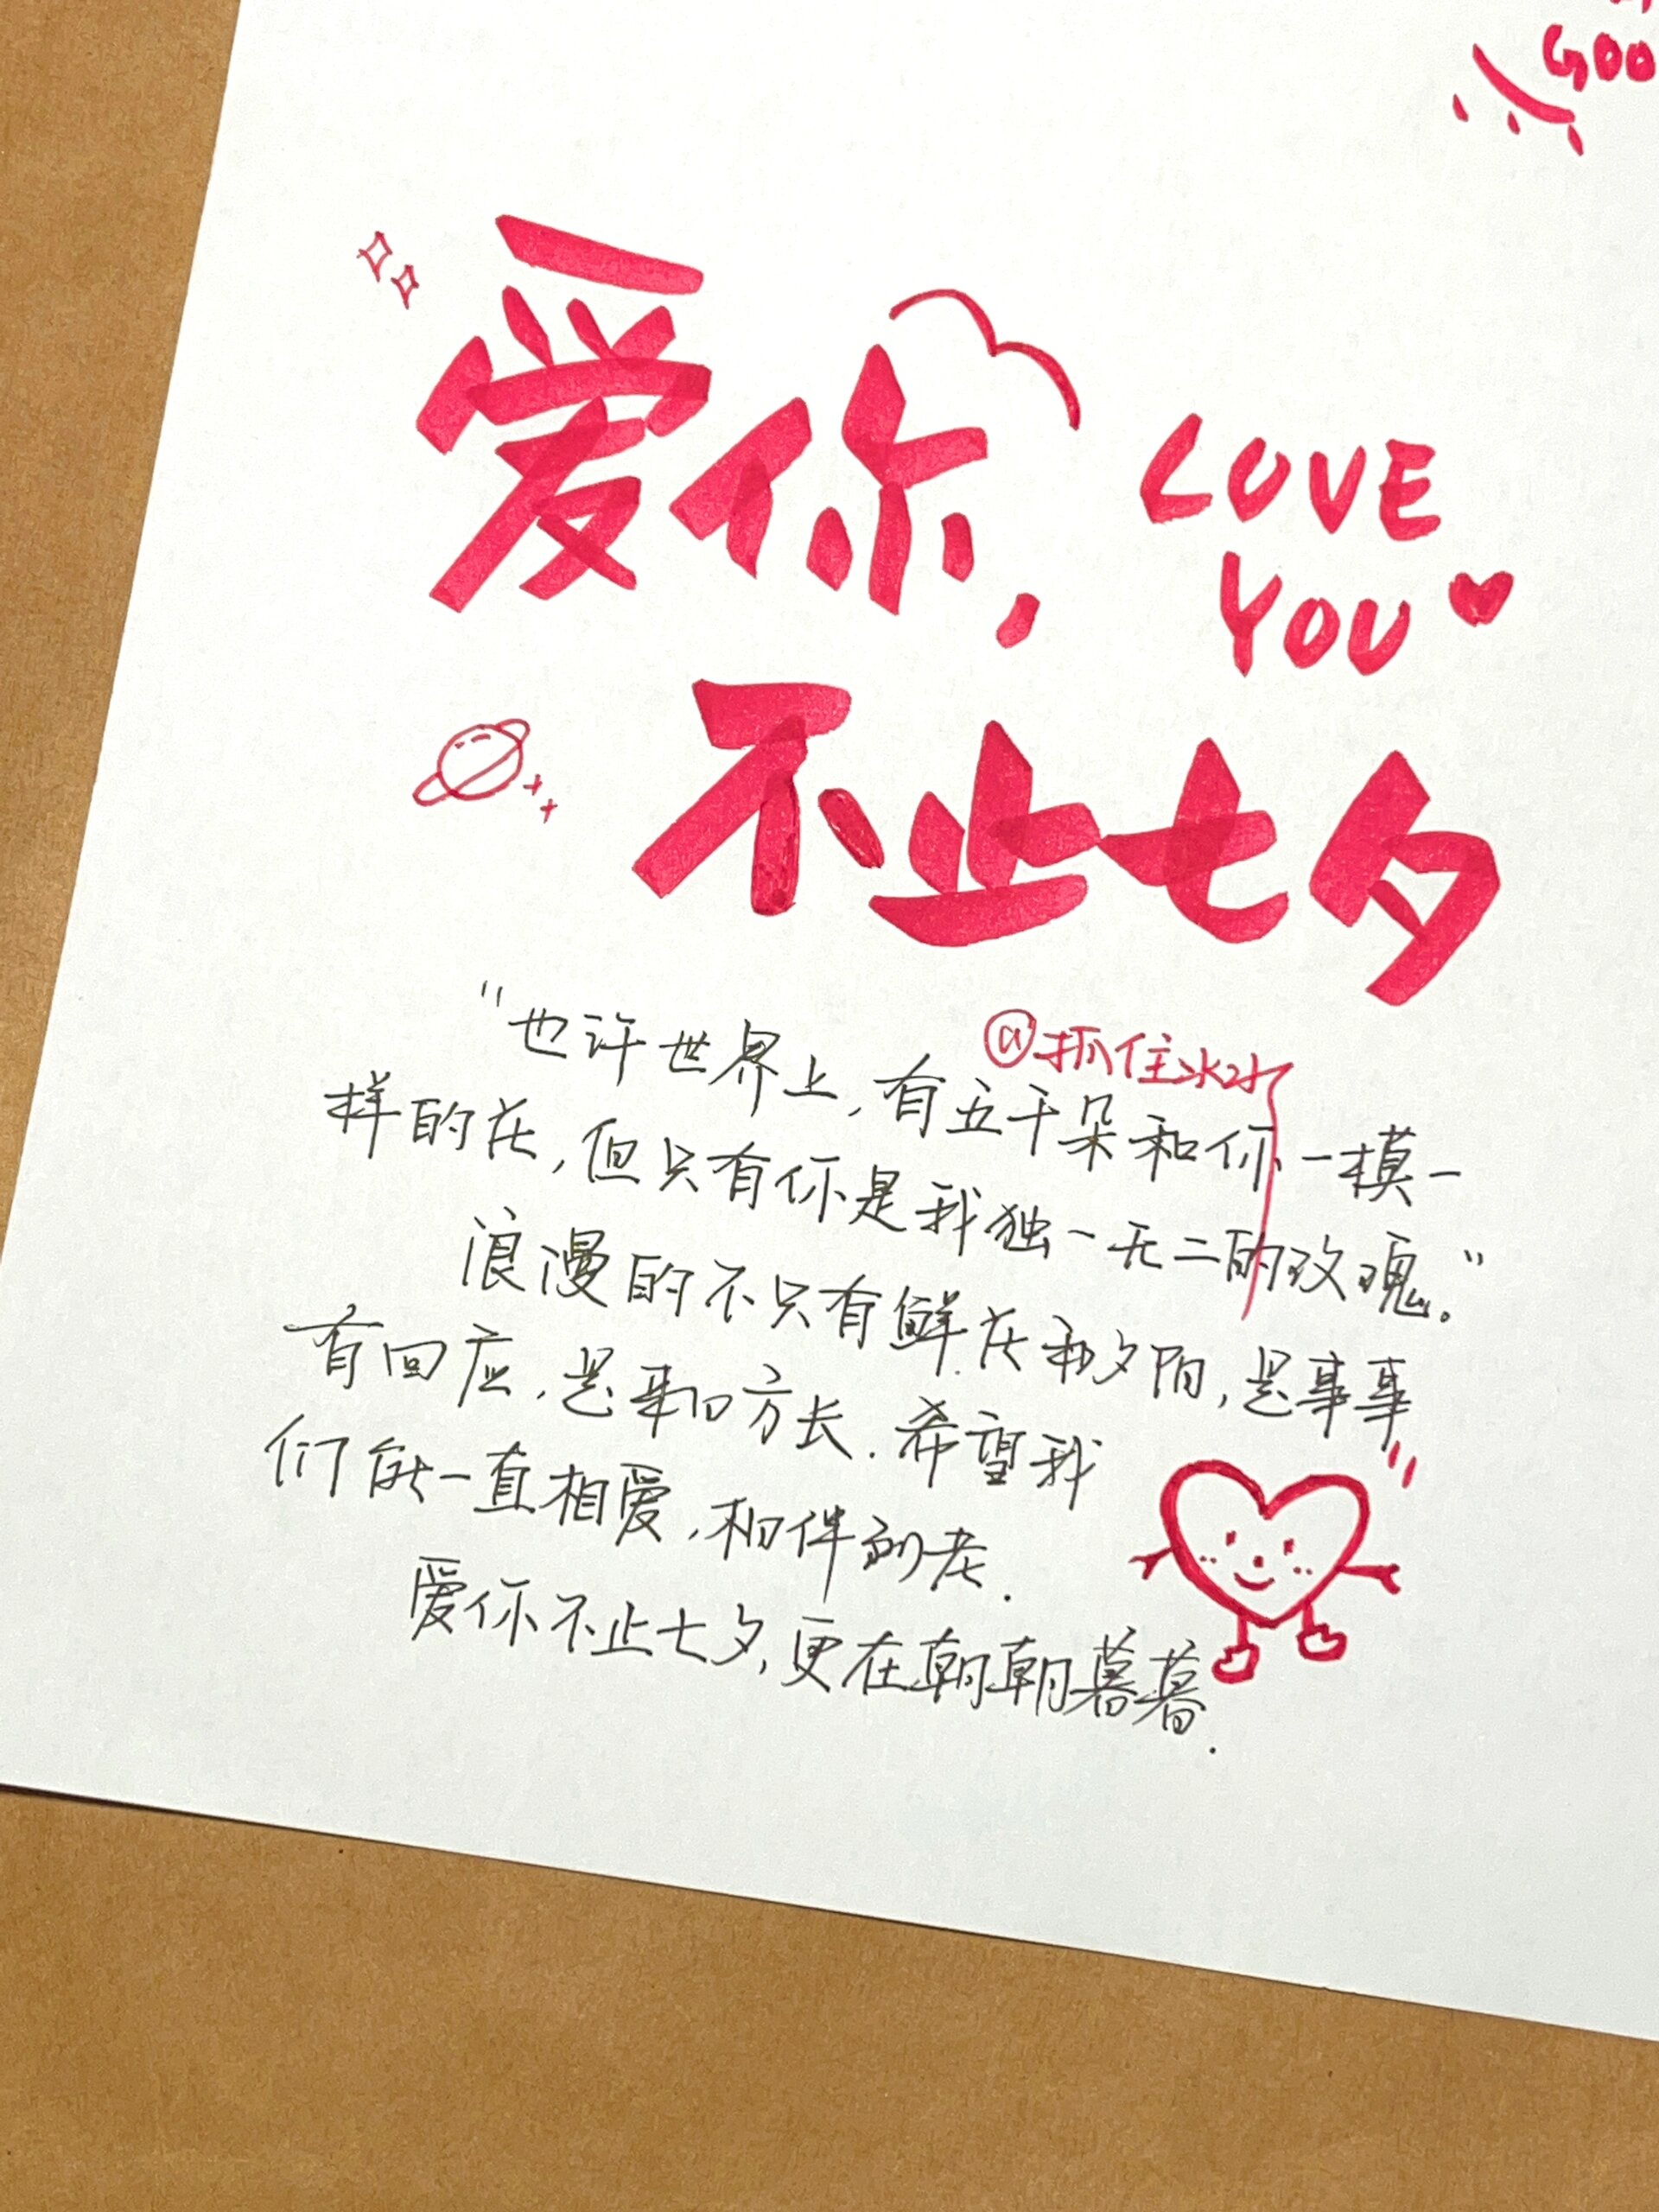 GOO
爱你,
LOVE
YOU
不止七夕
@抓住
"也许世界上,有五千朵和你一模一
样的花,但只有你是我独一无二的玫瑰。"
浪漫的不只有鲜花和夕阳,是事事
有回应,是来日方长.希望我
们能一直相爱,相伴到老.
爱你不止七夕,更在朝朝暮暮.